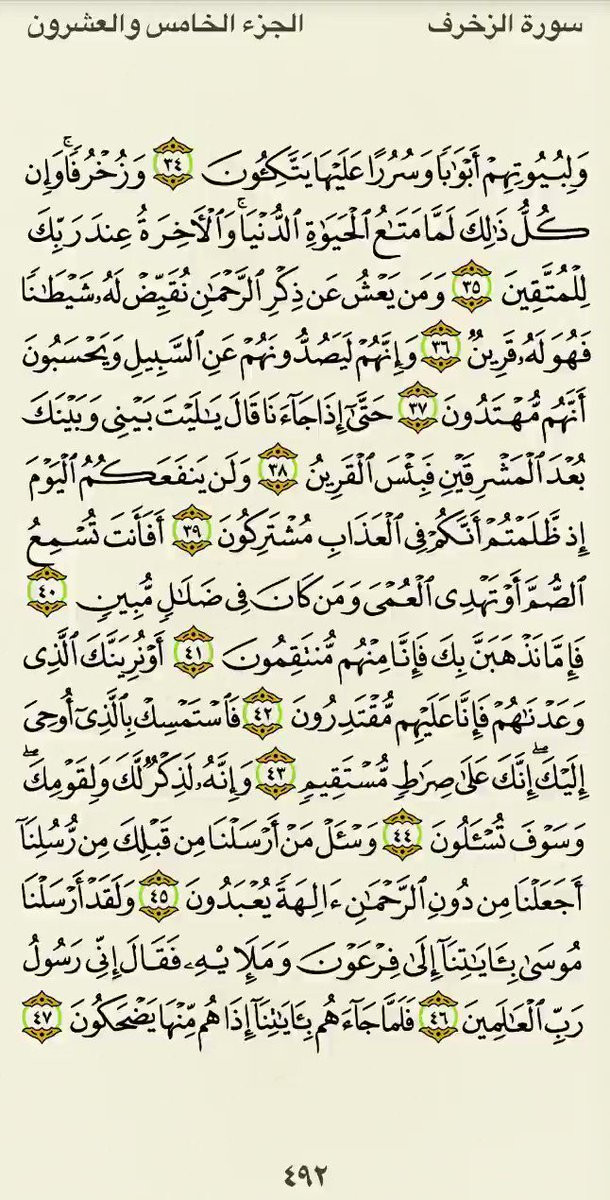 سورة الزخرف
الجزء الخامس والعشرون
وَلِبُيُوتِهِمْ أَبْوَٰبًا وَسُرُرًا عَلَيْهَا يَتَّكِـُٔونَ ٣٤ وَزُخْرُفًا ۚ وَإِن
كُلُّ ذَٰلِكَ لَمَّا مَتَـٰعُ الْحَيَوٰةِ الدُّنْيَا ۚ وَالْـَٔاخِرَةُ عِندَ رَبِّكَ
لِلْمُتَّقِينَ ٣٥ وَمَن يَعْشُ عَن ذِكْرِ الرَّحْمَـٰنِ نُقَيِّضْ لَهُۥ شَيْطَـٰنًا
فَهُوَ لَهُۥ قَرِينٌ ٣٦ وَإِنَّهُمْ لَيَصُدُّونَهُمْ عَنِ السَّبِيلِ وَيَحْسَبُونَ
أَنَّهُم مُّهْتَدُونَ ٣٧ حَتَّىٰٓ إِذَا جَآءَنَا قَالَ يَـٰلَيْتَ بَيْنِى وَبَيْنَكَ
بُعْدَ الْمَشْرِقَيْنِ فَبِئْسَ الْقَرِينُ ٣٨ وَلَن يَنفَعَكُمُ الْيَوْمَ
إِذ ظَّلَمْتُمْ أَنَّكُمْ فِى الْعَذَابِ مُشْتَرِكُونَ ٣٩ أَفَأَنتَ تُسْمِعُ
الصُّمَّ أَوْ تَهْدِى الْعُمْىَ وَمَن كَانَ فِى ضَلَـٰلٍ مُّبِينٍ ٤٠
فَإِمَّا نَذْهَبَنَّ بِكَ فَإِنَّا مِنْهُم مُّنتَقِمُونَ ٤١ أَوْ نُرِيَنَّكَ الَّذِى
وَعَدْنَـٰهُمْ فَإِنَّا عَلَيْهِم مُّقْتَدِرُونَ ٤٢ فَاسْتَمْسِكْ بِالَّذِىٓ أُوحِىَ
إِلَيْكَ ۖ إِنَّكَ عَلَىٰ صِرَٰطٍ مُّسْتَقِيمٍ ٤٣ وَإِنَّهُۥ لَذِكْرٌ لَّكَ وَلِقَوْمِكَ ۖ
وَسَوْفَ تُسْـَٔلُونَ ٤٤ وَسْـَٔلْ مَنْ أَرْسَلْنَا مِن قَبْلِكَ مِن رُّسُلِنَآ
أَجَعَلْنَا مِن دُونِ الرَّحْمَـٰنِ ءَالِهَةً يُعْبَدُونَ ٤٥ وَلَقَدْ أَرْسَلْنَا
مُوسَىٰ بِـَٔايَـٰتِنَآ إِلَىٰ فِرْعَوْنَ وَمَلَإِيْهِۦ فَقَالَ إِنِّى رَسُولُ
رَبِّ الْعَـٰلَمِينَ ٤٦ فَلَمَّا جَآءَهُم بِـَٔايَـٰتِنَآ إِذَا هُم مِّنْهَا يَضْحَكُونَ ٤٧
٤٩٢